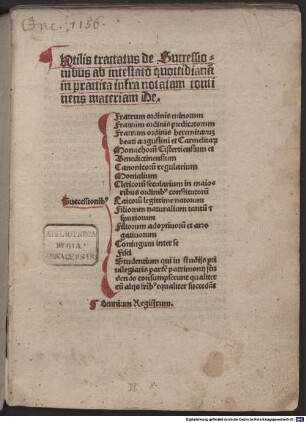 Inc. 1156.
Utilis tractatus de Successio-
nibus ab intestato quottidianã
in practica infra notatam conti
nens materiam De.
Fratrum ordinis minorum
Fratrum ordinis predicatorum
Fratrum ordinis heremitarum
beati augustini et Carmelitarum
Monachorũ Cisterciensium et
Benedictinensium
Canonicorũ regularium
Monialium
Clericorũ secularium in maiori
ribus ordinibꝰ constitutorũ
Successionibꝰ Laicorũ legittime natorum
Filiorum naturalium tantũ et
spuriorum
Filiorum adoptiuorũ et arro
gatiuorum
Coniugum inter se
Fisci
Studentium qui in studijs pri
uilegiatis partẽ patrimonij stu
dendo consumpserunt qualiter
cũ alijs fratribꝰ equaliter succedãt
BIBLIOTHECA
REGIA
MONACENSIS
Registrum.